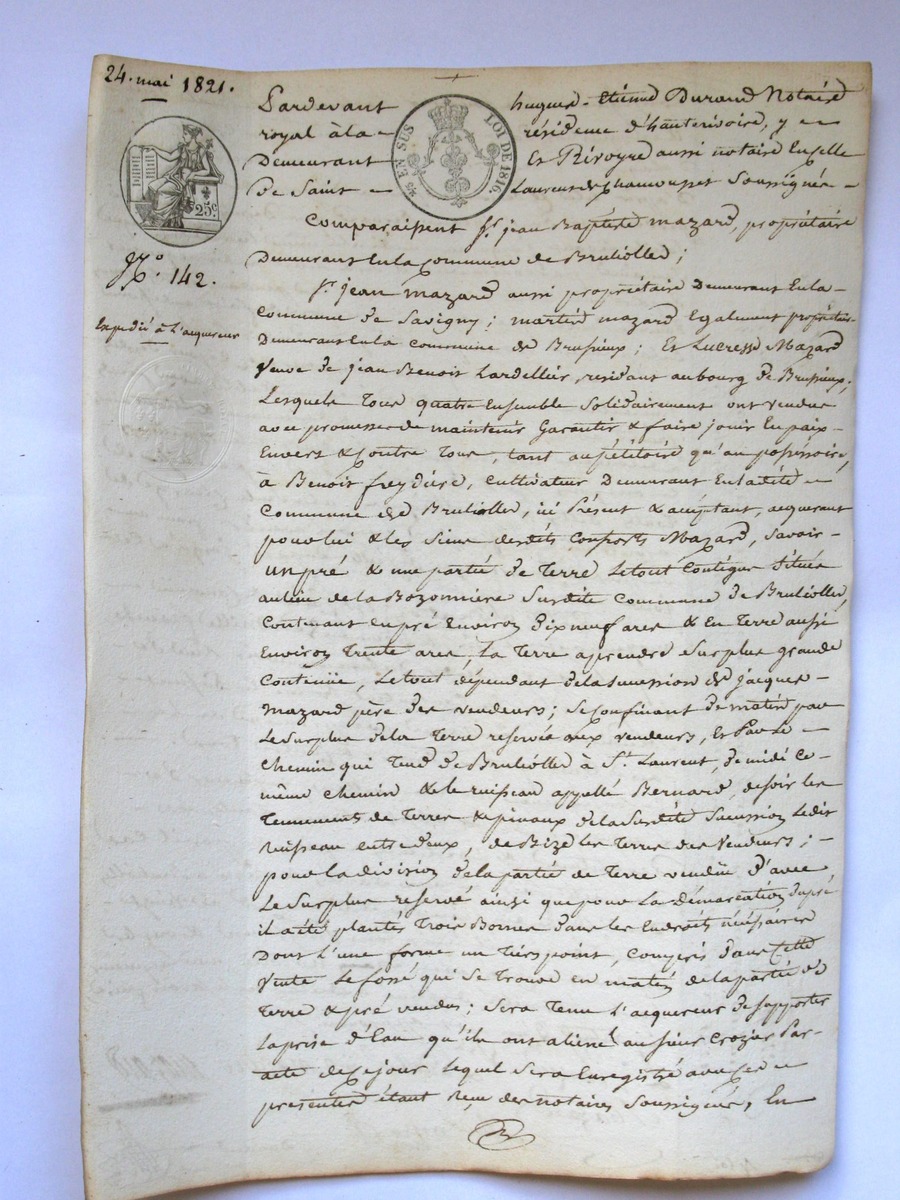 24. mai 1821.
Pardevant hugues-Etienne Durand Notaire
royal à la résidence d'hauterivoire, y
Demeurant Et Périoyre aussi notaire En celle
de Saint Laurent de chamousset Soussignés
EN SUS LOI DE 1816.
25c
N.o 142.
Expédié à l'acquereur
Comparaissent Sr. jean Baptiste mazard, propriétaire
Demeurant En la commune de Brullioles;
Sr. jean mazard aussi propriétaire demeurant En la
Commune de Savigny; martin mazard Egalement propriétaire
Demeurant En la commune de Brussieux; Et Lucresse Mazard
Veuve de jean Benoit Lardellier, residant au bourg de Brussieux,
Lesquels Tous quatre Ensemble Solidairement ont vendus
avec promesse de maintenir Garantir & faire jouir En paix
Envers & Contre Tous, tant au pétitoire qu'au possessoire,
à Benoit freydière, Cultivateur Demeurant En la dite
Commune de Brullioles, ici Présent & acceptant, acquerant
pour lui & les Siens desdits Consorts Mazard, Savoir
un pré & une partie de Terre Le tout Contigue Situés
au lieu de la Bozonnière Susdite Commune de Brullioles,
Contenant en pré Environ dix neuf ares & En Terre aussi
Environ Trente ares, la Terre a prendre Sur plus grande
Contenue, Le tout dépendant de la Succession de jacques
mazard père des vendeurs; Se Confinant de matin par
Le Surplus de la Terre reservée aux vendeurs, Et Par Le
Chemin qui Tend de Brullioles à St. Laurent, de midi Ce
même Chemin & le ruisseau appellé Bernard, de soir les
Tennements de Terres & pinaux de la Susdite Succession Ledit
ruisseau entre deux, de Bize les Terres des Vendeurs;
pour la division de la partie de Terre vendue d'avec
Le Surplus reservé ainsi que pour La Démarcation du pré
il a été plantés Trois Bornes dans les Endroits nécéssaires
Dont L'une forme un Tiers point, Compris dans Cette
Vente Le fossé qui Se Trouve en matin de la partie de
Terre & pré vendus; Sera Tenu L'acquereur de Supporter
La prise d'Eau qu'ils ont aliené au Sieur Crozier Par
acte de ce jour lequel Sera Enregistré avec ces
presentes étant Reçu des notaires Soussignés, En